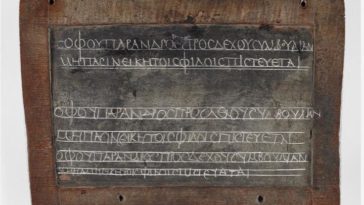 ϹΟΦΟΥΠΑΡΑΝΔΡΟϹΠΡΟϹΔΕΧΟΥϹΥΜΒΟΥΛΙΑΝ
ΜΗΠΑϹΙΝΕΙΚΗΤΟΙϹΦΙΛΟΙϹΠΙϹΤΕΥΕΤΑΙ
ΟΦΟΥΠΑΡΑΝΔΡΟϹΠΡΟϹΔΧΟΥϹΥΜΒΟΥΛΙΑΝ
ΜΗΠΑϹΙΝΕΙΚΗΤΟΙϹΦΙΛΟΙϹΠΙϹΤΕΥΕΤΑΙ
ΟΦΟΥΠΑΡΑΝΔΡΟϹΠΡΟϹΔΕΧΟΥϹΥΜΒΟΥΛΙΑΝ